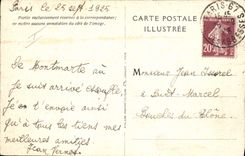 Paris le 25 sept 1925
Partie exclusivement réservée à la correspondance;
ne mettre aucune annotation du côté de l'image.
CARTE POSTALE
ILLUSTRÉE
PARIS
20
De Montmartre où
je suis arrivé
je t'envoie ainsi
qu'à tous les tiens mes
meilleures amitiés
Jean
Monsieur Jean
à Saint Marcel
Bouches du Rhône